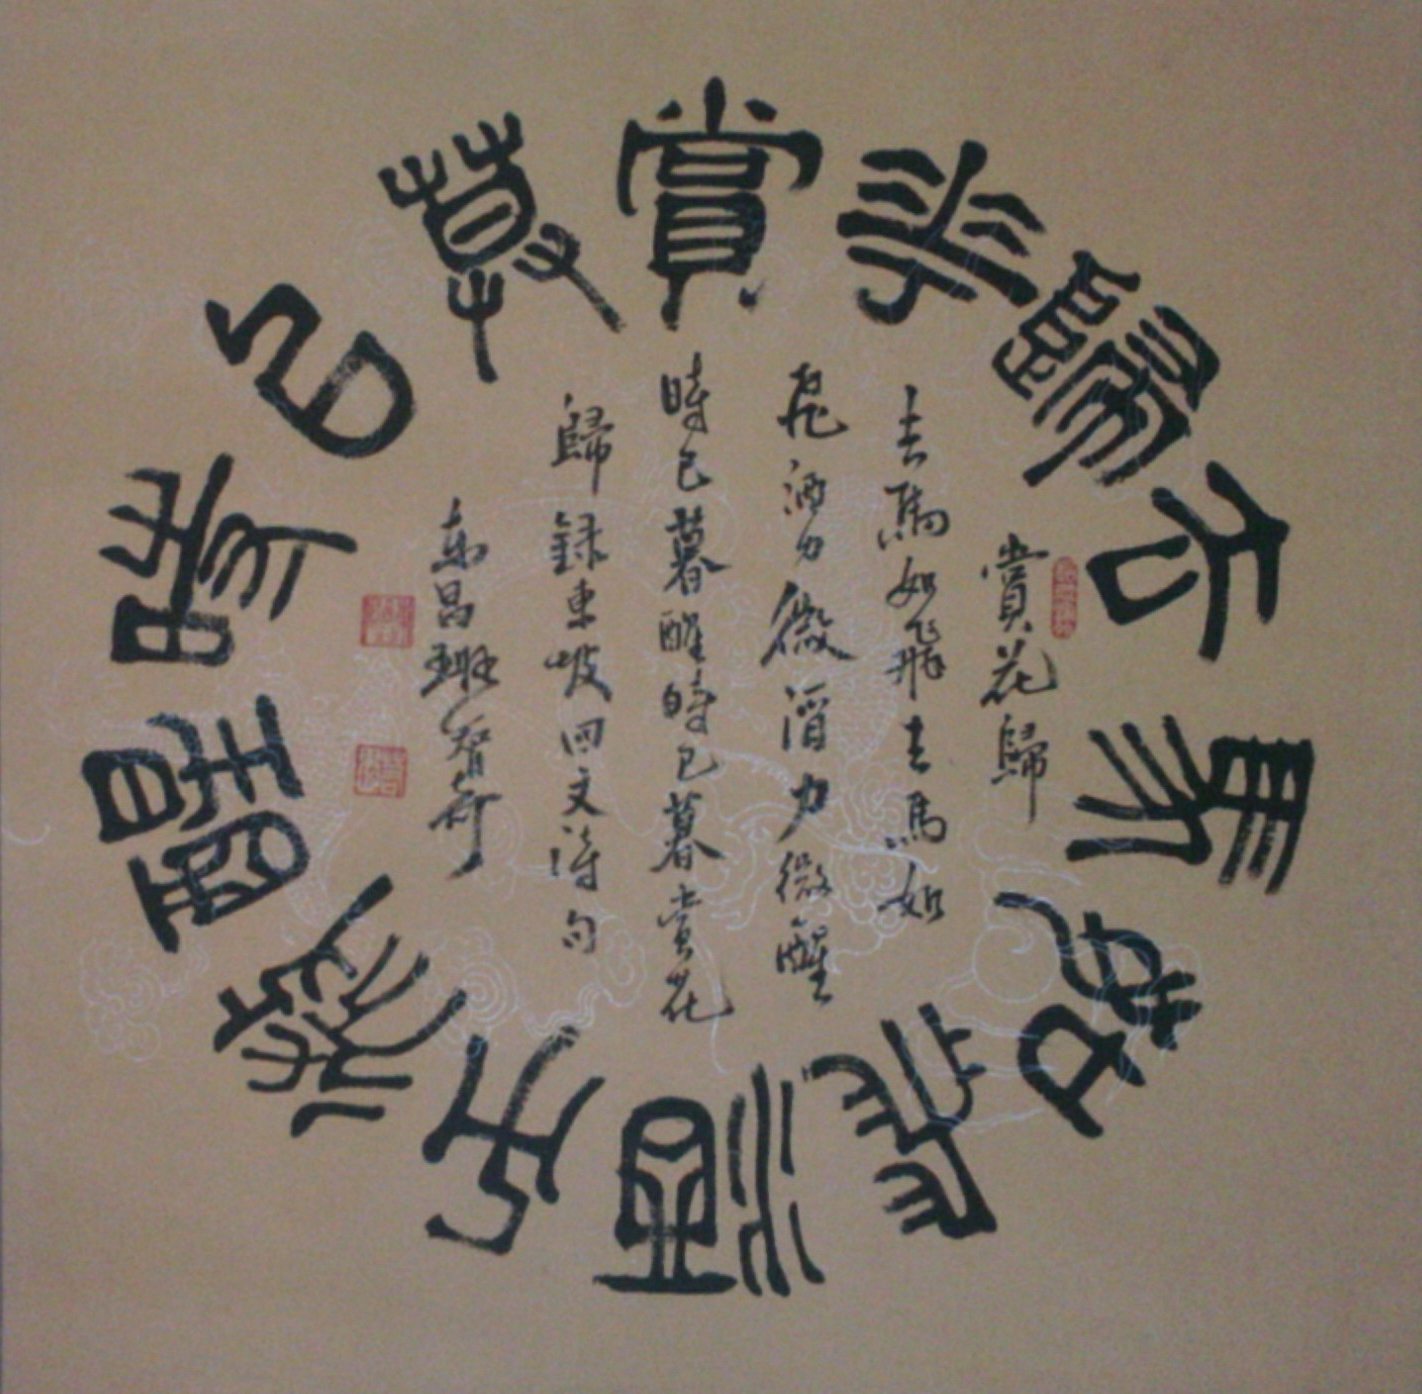 賞花歸去馬如飛酒力微醒時已暮
賞花歸
去馬如飛去馬如
飛酒力微酒力微醒
時已暮醒時已暮賞花
歸録東坡回文詩句